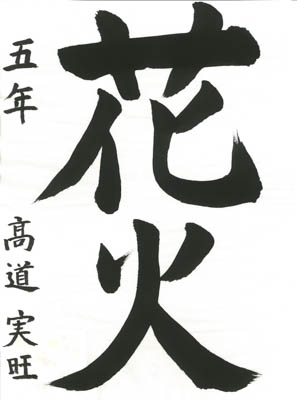 花火
五年 高道実旺